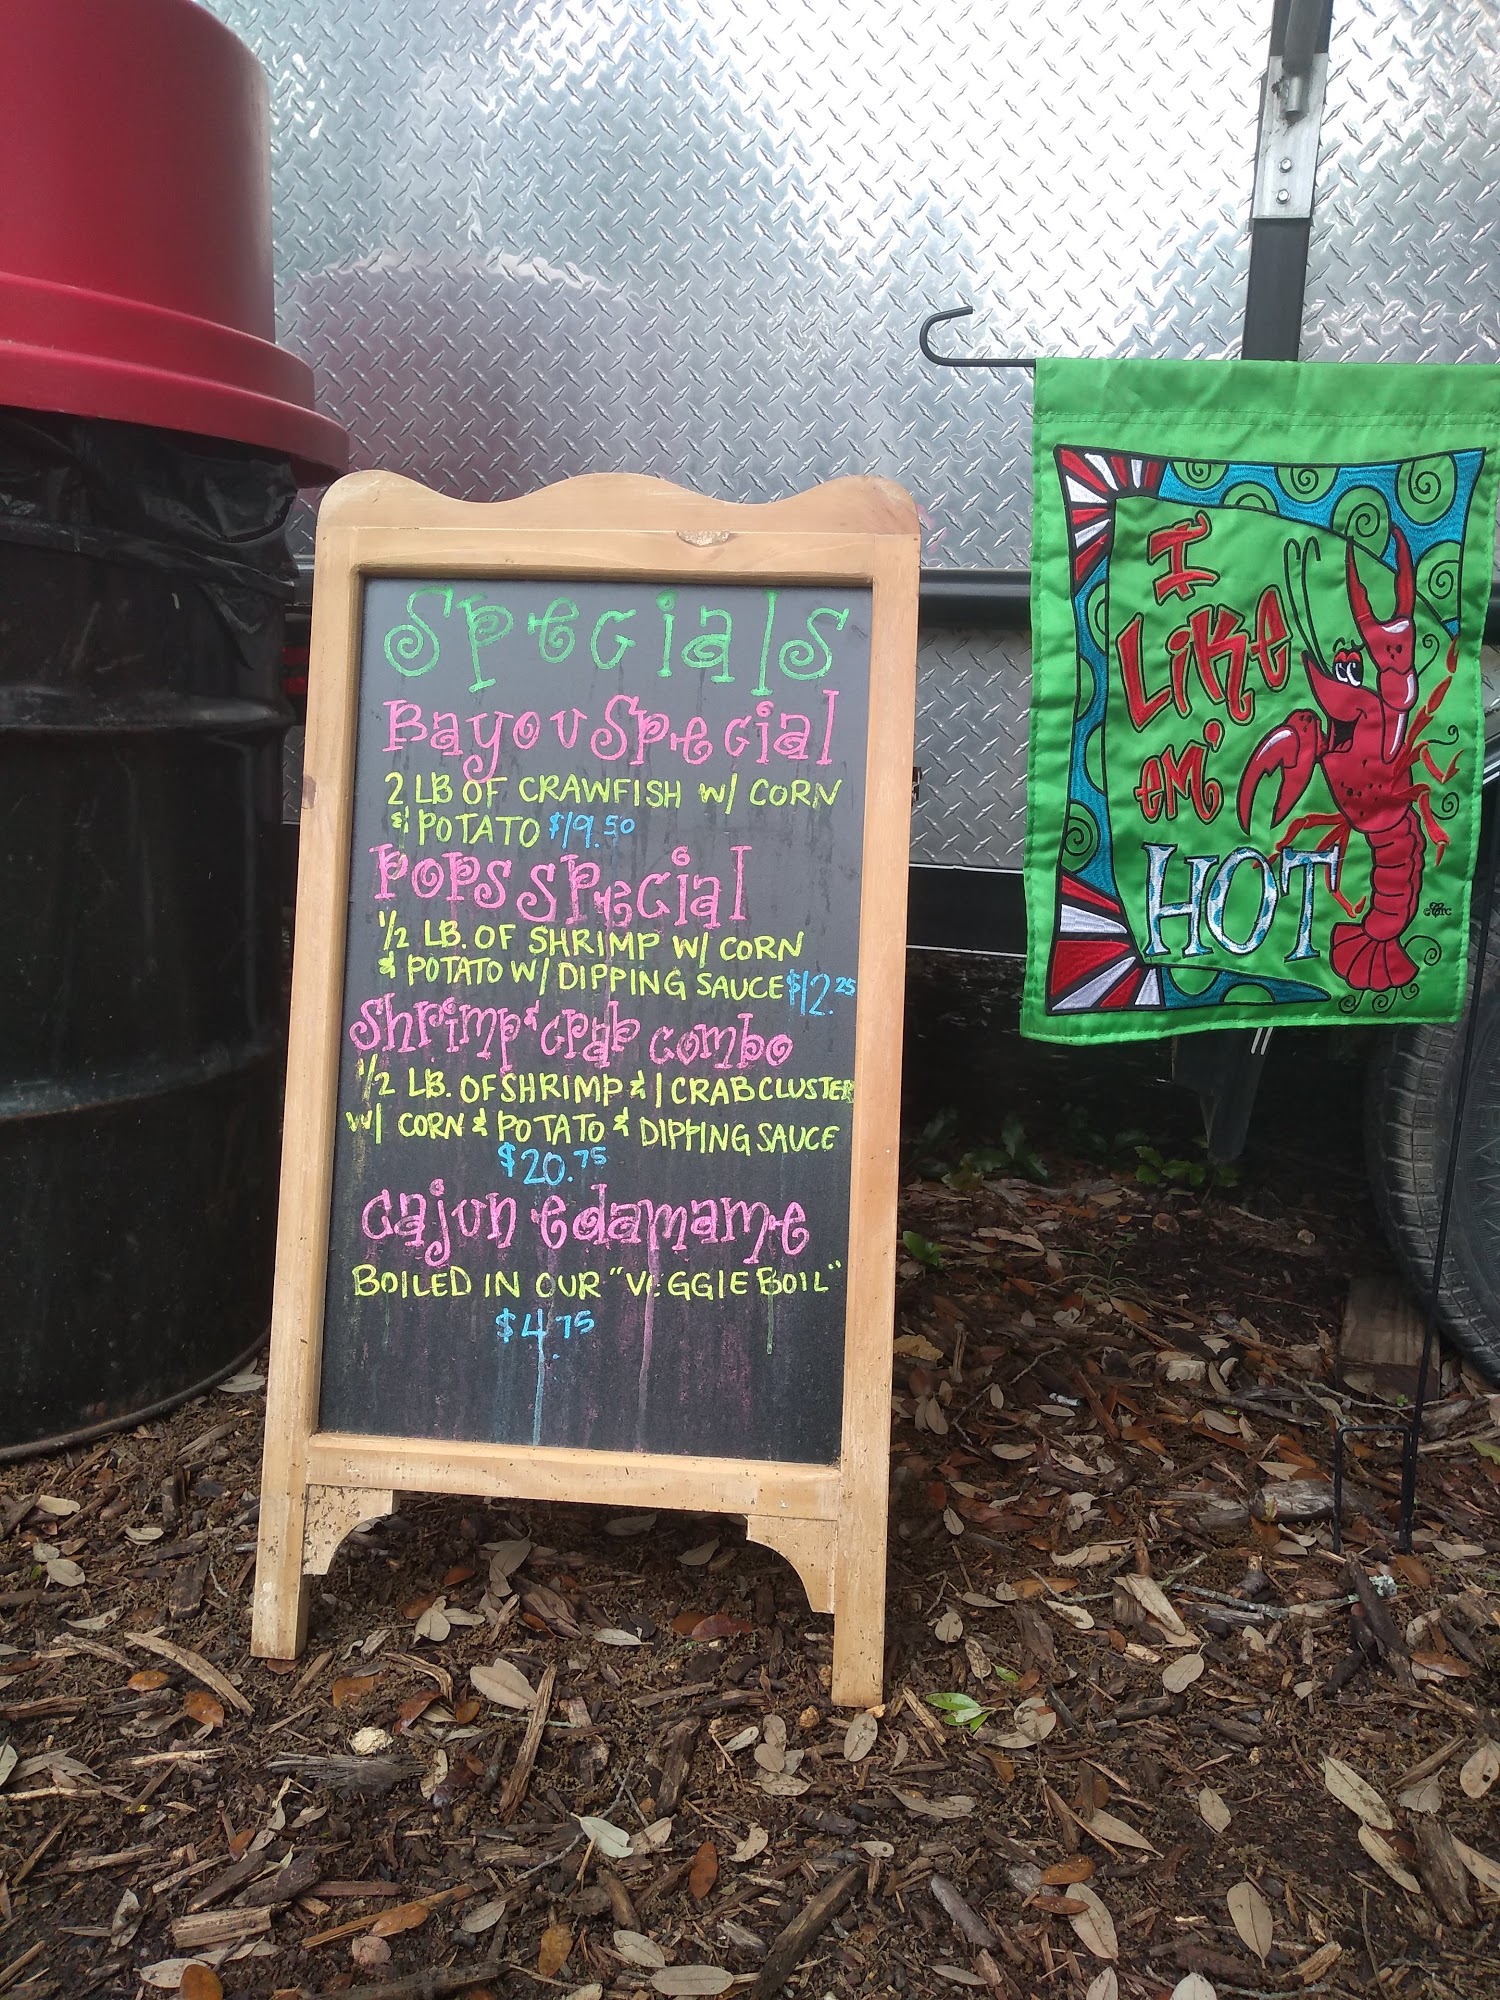 Specials
Bayou Special
2 LB OF CRAWFISH W/ CORN
& POTATO $19.50
POPS SPecial
1/2 LB. OF SHRIMP W/ CORN
& POTATO W/ DIPPING SAUCE $12.25
Shrimp & Crab Combo
1/2 LB. OF SHRIMP & 1 CRAB CLUSTER
W/ CORN & POTATO & DIPPING SAUCE
$20.75
Cajun edamame
BOILED IN OUR "VEGGIE BOIL"
$4.75
I
Like
em'
HOT